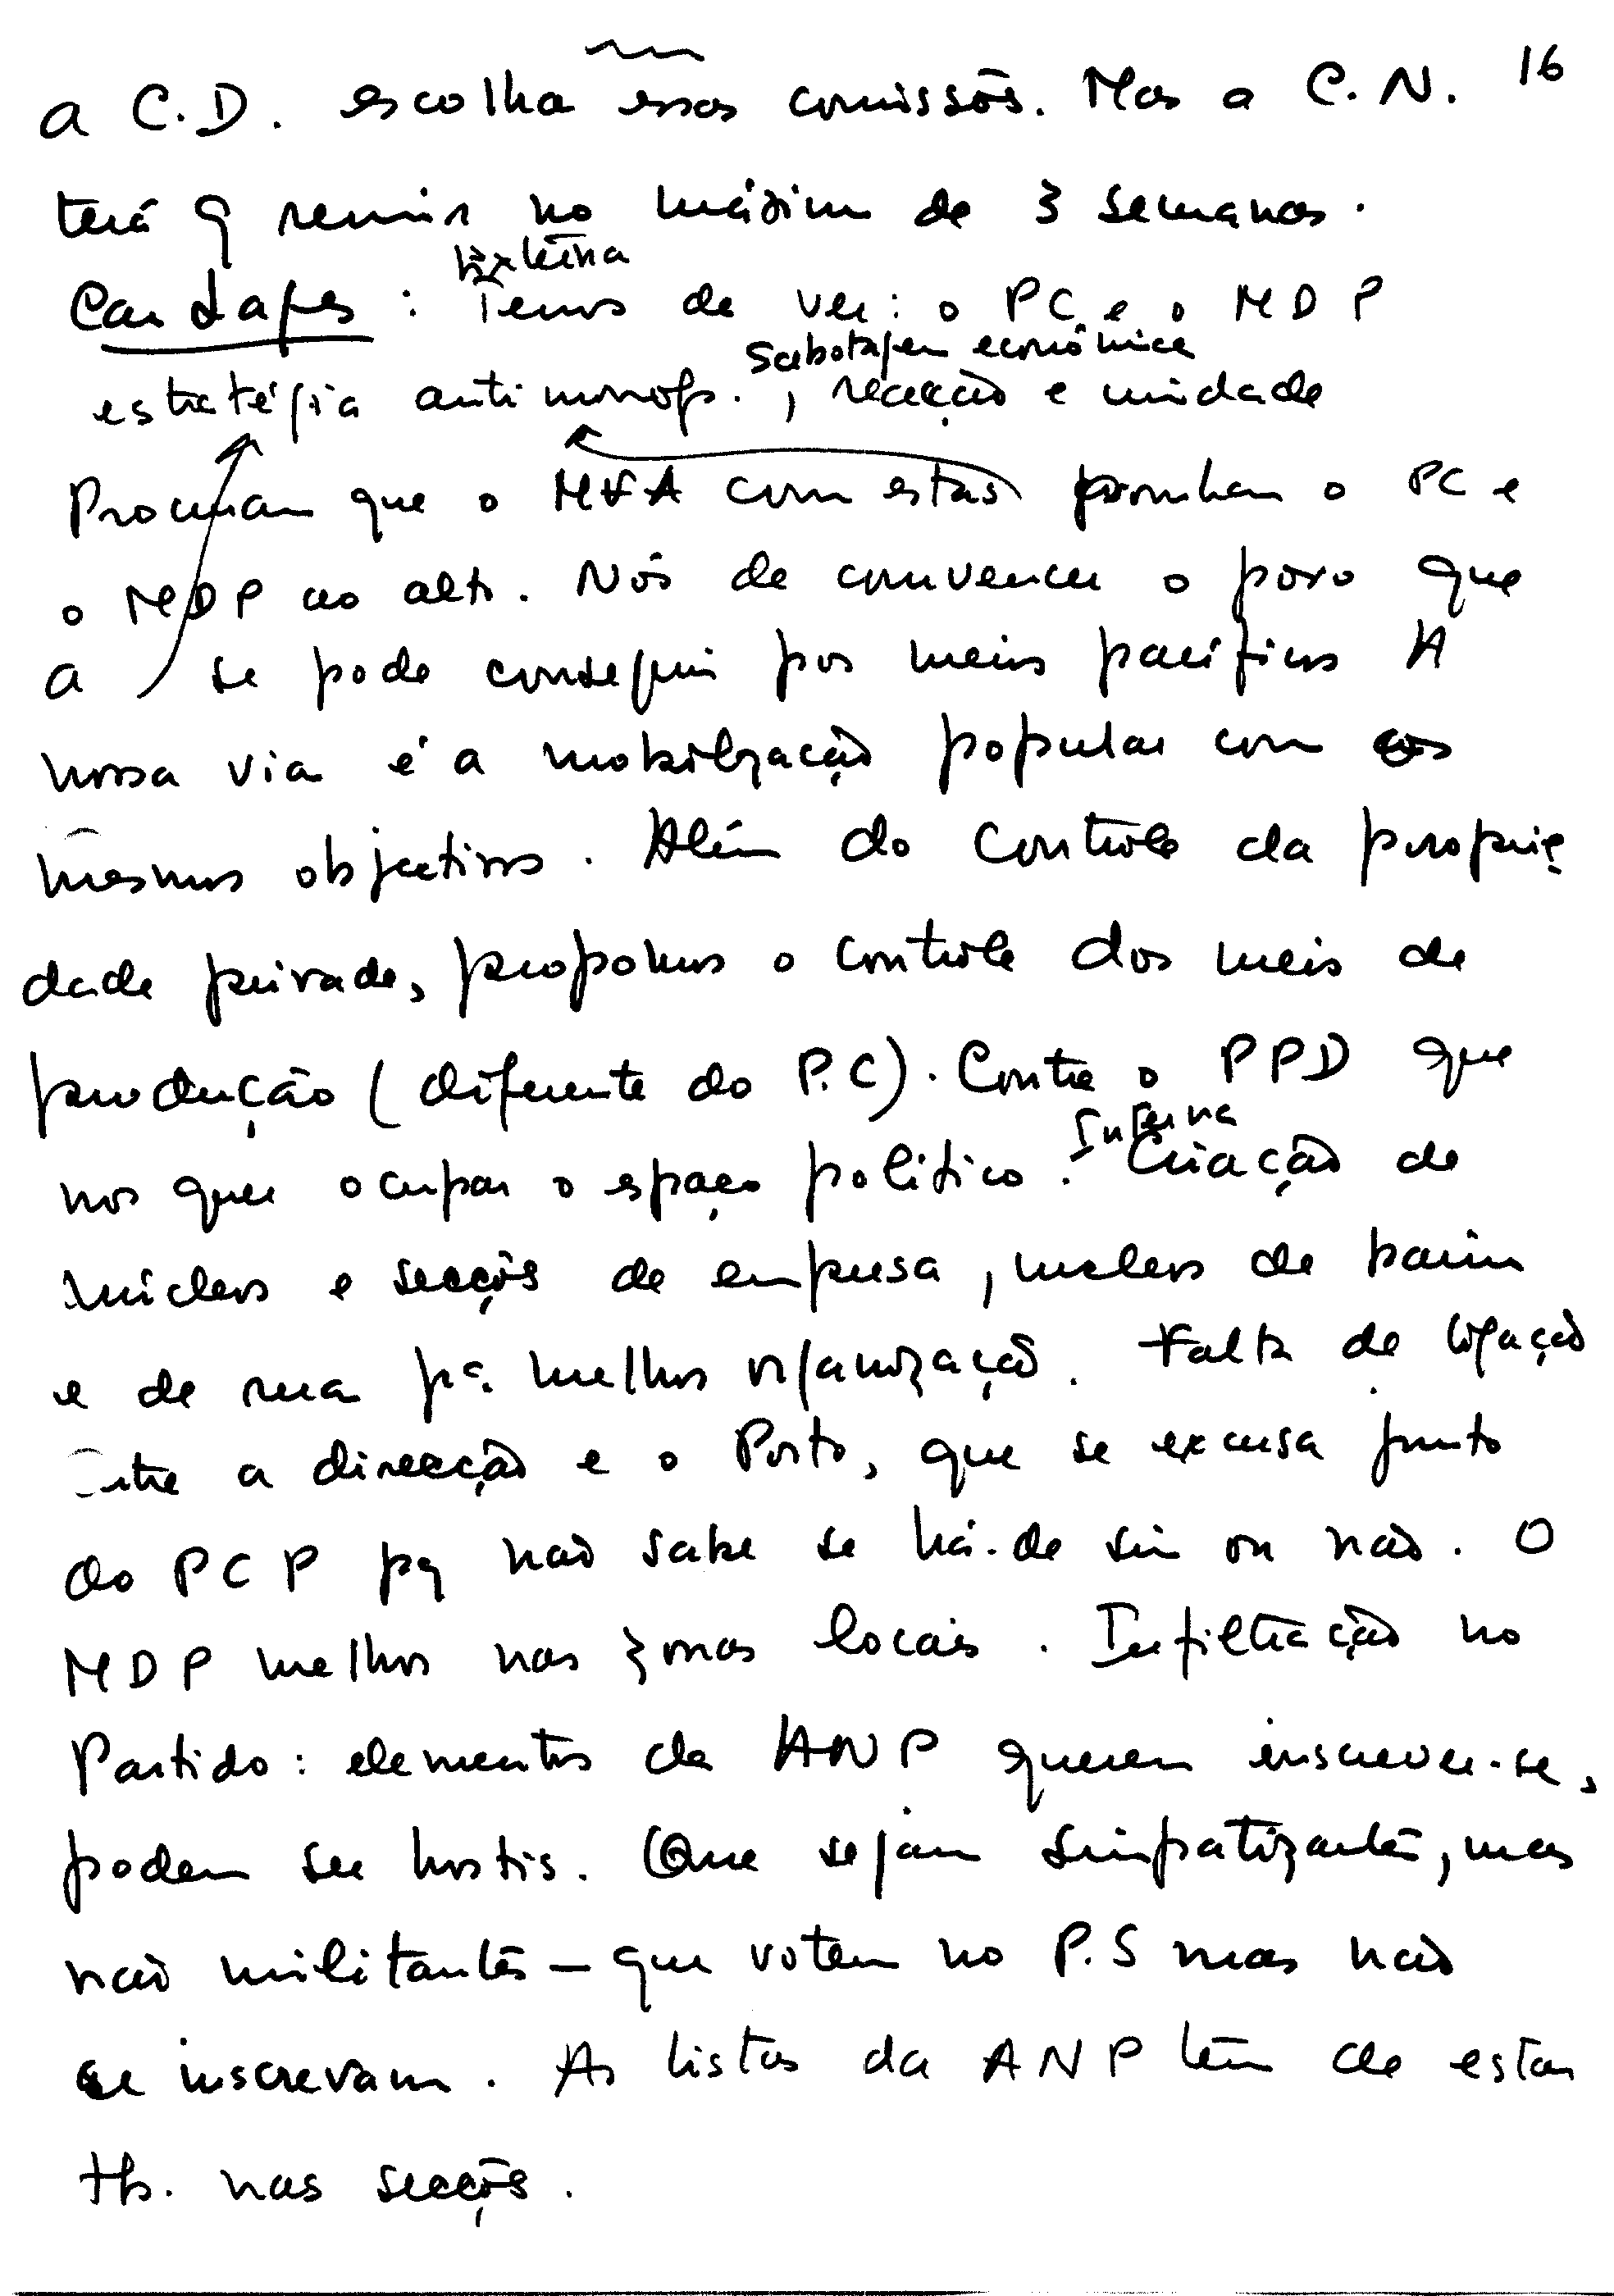 16
a C.D. escolha essas comissões. Mas a C.N.
terá q reunir no máximo de 3 semanas.
Externa
Cardafes : Temos de ver: o PC e o MDP
sabotagem económica
estratégia antimonop. , reacção e unidade
Procuram que o MFA com estas ponham o PC e
o MDP ao alto. Nós de convencer o povo que
a se pode conseguir por meios pacíficos A
nossa via é a mobilização popular com os
mesmos objectivos. Além do controle da proprie
dade privada, propomos o controle dos meios de
produção (diferente do P.C). Contra o PPD que
Interna
nos quer ocupar o espaço político. Criação de
núcleos e secções de empresa, nucleos de bairro
e de rua pª. melhor organização. Falta de ligação
entre a direcção e o Porto, que se excusa junto
do PCP pq não sabe se há-de sim ou não. O
MDP melhor nas zonas locais. Infiltração no
Partido: elementos da ANP querem inscrever-se,
podem ser hostis. Que sejam simpatizantes, mas
não militantes - que votem no P.S mas não
se inscrevam. As listas da ANP têm de estar
tb. nas secções.